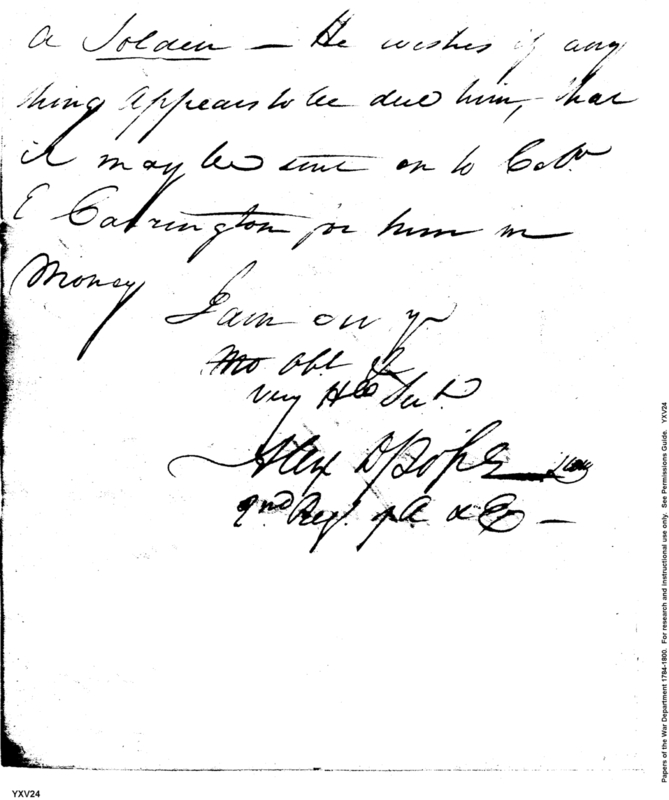 a Soldier — He wishes if any
thing Appears to be due him, that
it may be sent on to Colo.
E Carrington for him in
Money
I am Sir yr
Mo Obt &
very Hble Servt.
Alexr D Pope Lieut
2nd Regt. of A & E —
Papers of the War Department 1784-1800. For research and instructional use only. See Permissions Guide. YXV24
YXV24